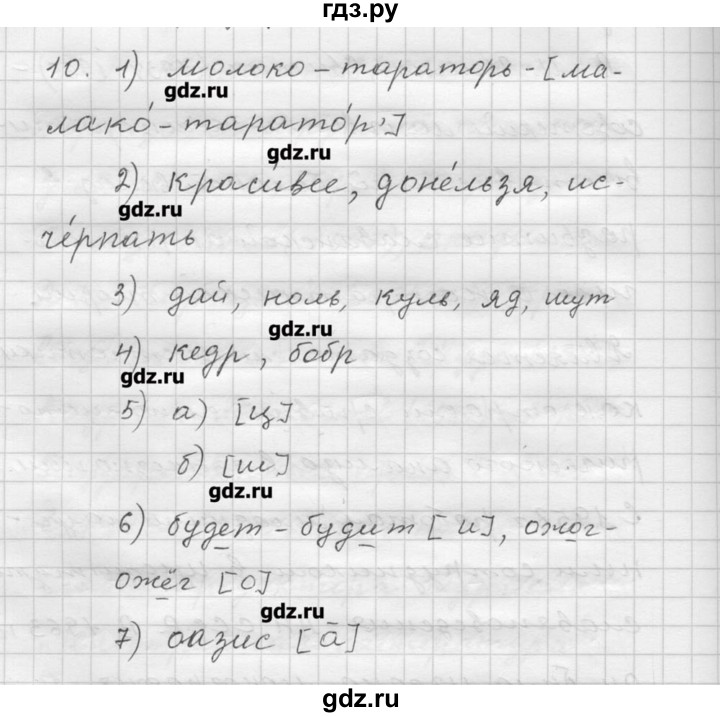 гдз.ру
10. 1) молоко – тараторь – [ма-
gdz.ru
лако́ – тарато́р']
gdz.ru
2) краси́вее, доне́льзя, ис-
gdz.ru
че́рпать
3) дай, ноль, куль, яд, шут
gdz.ru
4) кедр, бобр
gdz.ru
5) а) [ц]
б) [ш]
gdz.ru
6) будет – будит [и], ожог-
ожёг [о]
gdz.ru
7) оазис [а̄]
gdz.ru